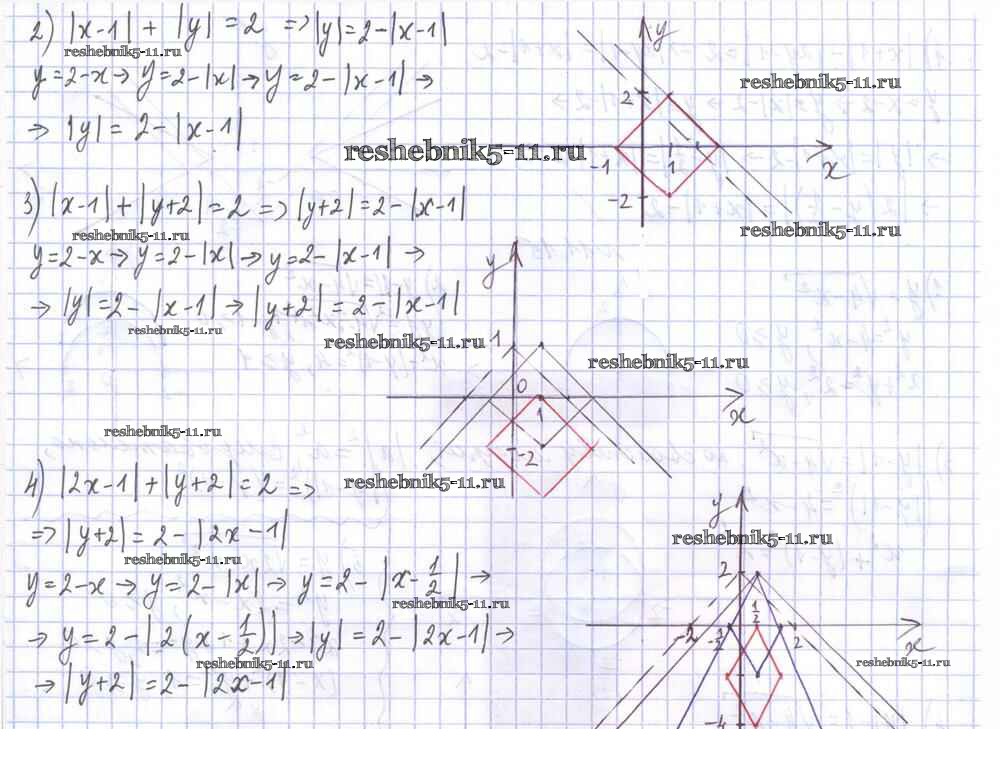 2) |x-1| + |y| = 2 => |y| = 2-|x-1|
reshebnik5-11.ru
y=2-x → y=2-|x| → y=2-|x-1| →
→ |y| = 2-|x-1|
y
reshebnik5-11.ru
2
reshebnik5-11.ru
-1
1
x
-2
reshebnik5-11.ru
3) |x-1|+|y+2|=2 => |y+2|=2-|x-1|
reshebnik5-11.ru
y=2-x → y=2-|x| → y=2-|x-1| →
→ |y|=2-|x-1| → |y+2|=2-|x-1|
reshebnik5-11.ru
y
1
reshebnik5-11.ru
reshebnik5-11.ru
0
1
x
-2
reshebnik5-11.ru
reshebnik5-11.ru
4) |2x-1|+|y+2|=2 =>
=> |y+2|=2-|2x-1|
reshebnik5-11.ru
y=2-x → y=2-|x| → y=2-|x-1/2| →
reshebnik5-11.ru
→ y=2-|2(x-1/2)| → |y|=2-|2x-1| →
reshebnik5-11.ru
→ |y+2|=2-|2x-1|
y
reshebnik5-11.ru
2
1/2
-2
2
x
reshebnik5-11.ru
-4